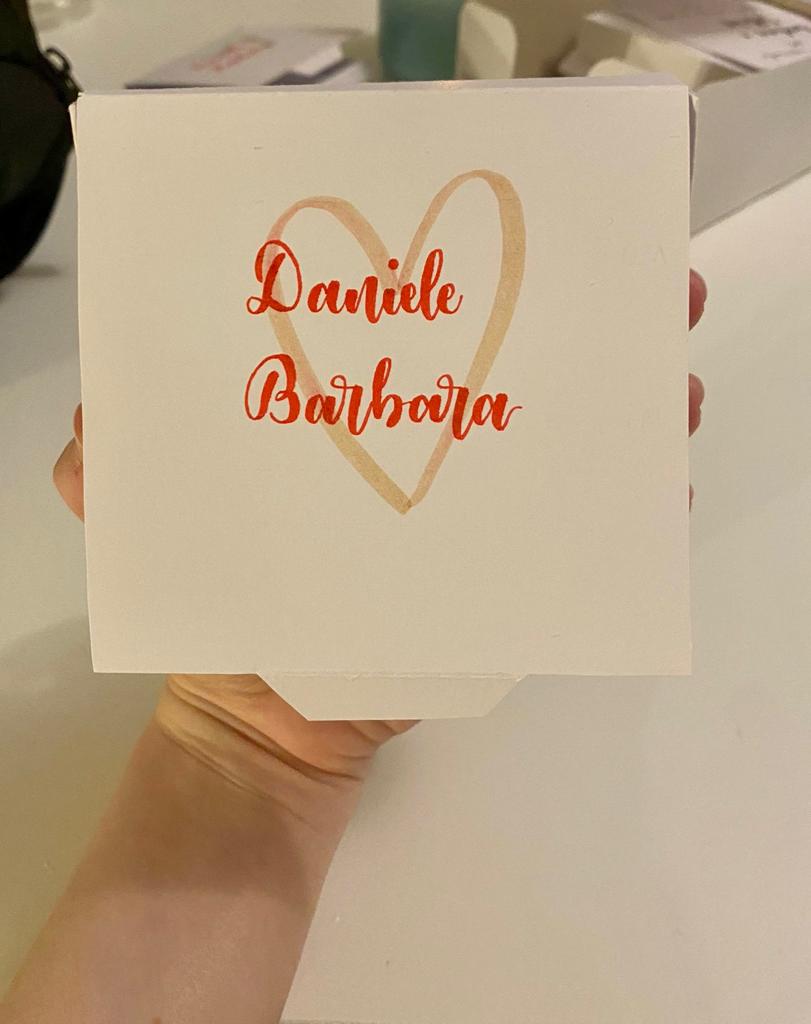 Daniele
Barbara